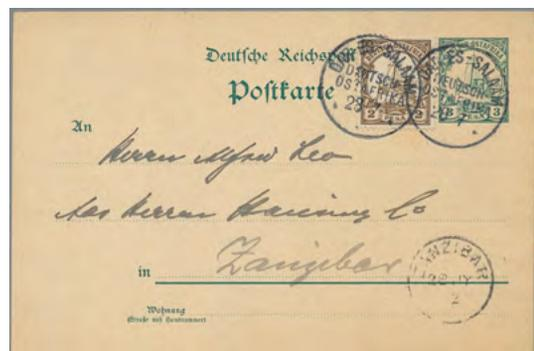 Deutsche Reichspost
Postkarte
DAR-ES-SALAAM
DEUTSCH-
OSTAFRIKA
DAR-ES-SALAAM
DEUTSCH-
OSTAFRIKA
2
2
3
An
Herrn Alfred Leo
Herren Hansing Co
in Zanzibar
ZANZIBAR
Wohnung
(Straße und Hausnummer)